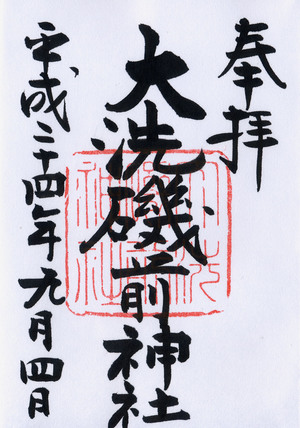 奉拝
大洗磯前神社
平成二十四年九月四日